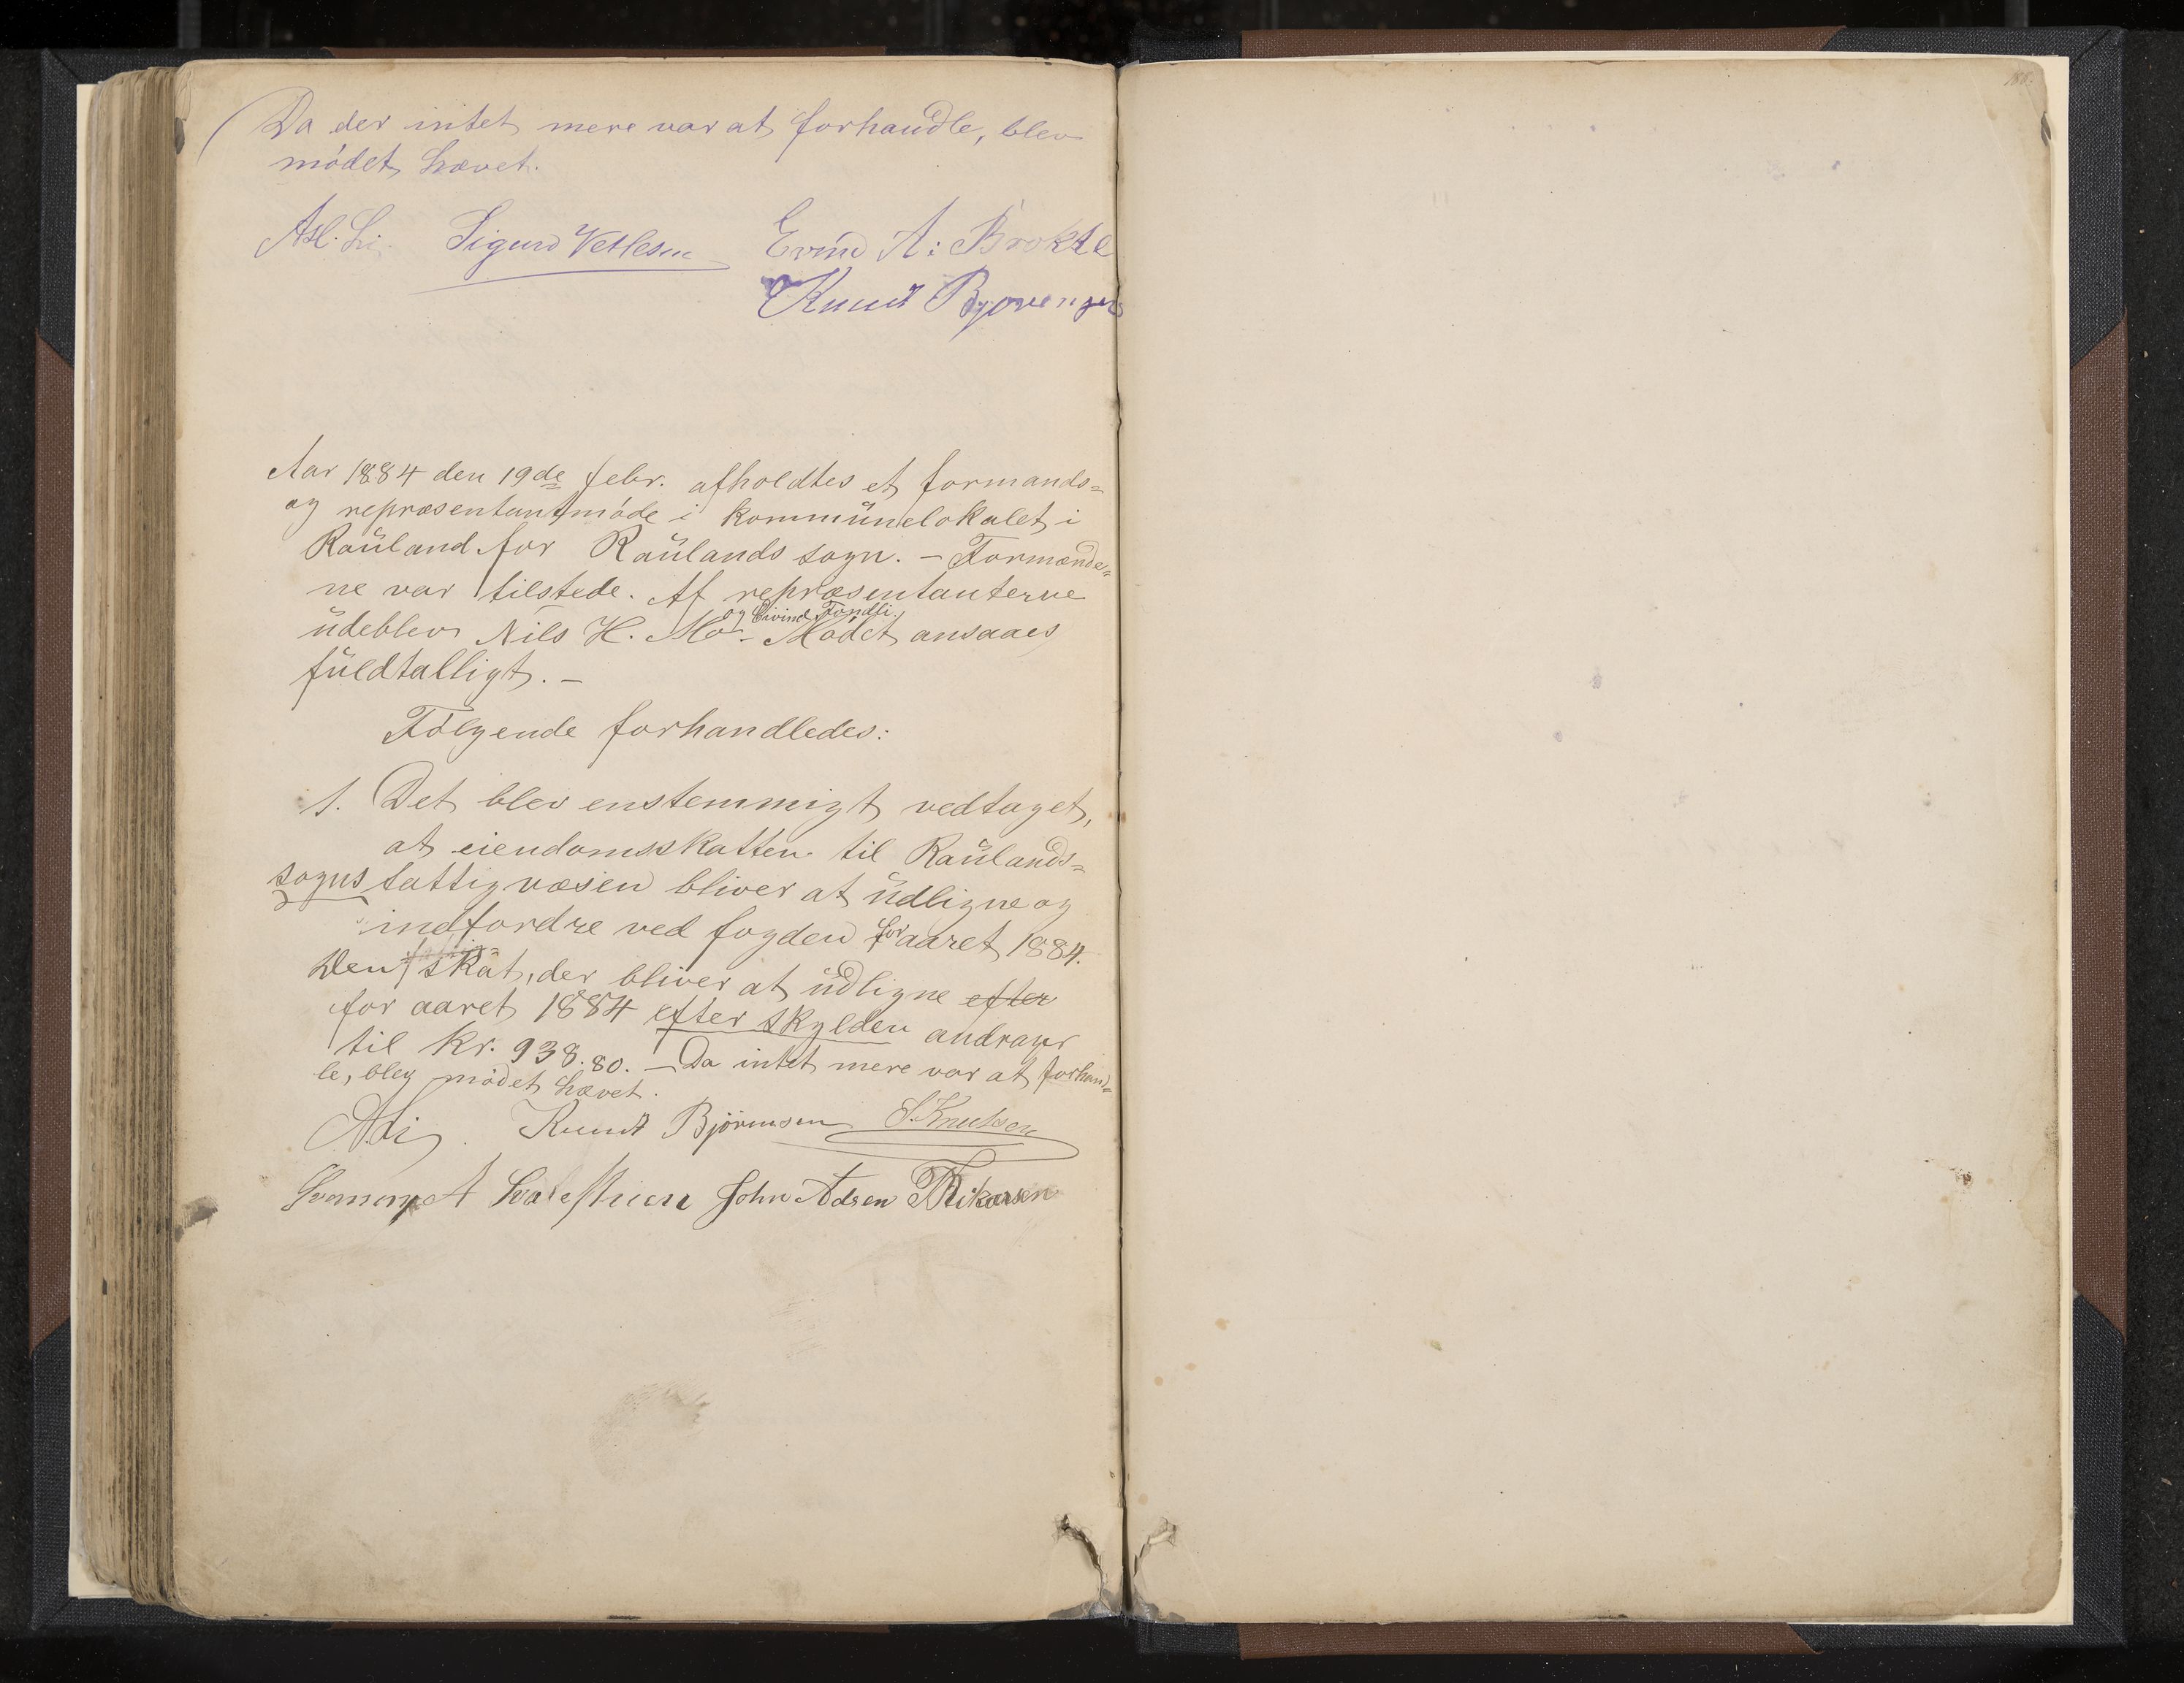 Da der intet mere var at forhandle, blev
mødet hævet.
Asl. Li. Sigurd Vetlesen Evind A: Brokke
Knud
Aar 1884 den 19de febr. afholdtes et formands=
og repræsentantmøde i kommunelokalet i
Rauland for Raulands sogn. – Formænde=
ne var tilstede. Af repræsentanterne
og Eivind
udeblev Nils H. Mo. – Mødet ansaaes
fuldtalligt. –
Følgende forhandledes:
1. Det blev enstemmigt vedtaget,
at eiendomsskatten til Raulands=
sogns fattigvæsen bliver at udligne og
indfordre ved fogden for aaret 1884.
Den skat, der bliver at udligne efter
for aaret 1884 efter skylden andrager
til kr. 938.80. – Da intet mere var at forhand=
le, blev mødet hævet.
A. Li. Knud Bjørnsen S. Knutsen
A John Adsen T Rikarsen